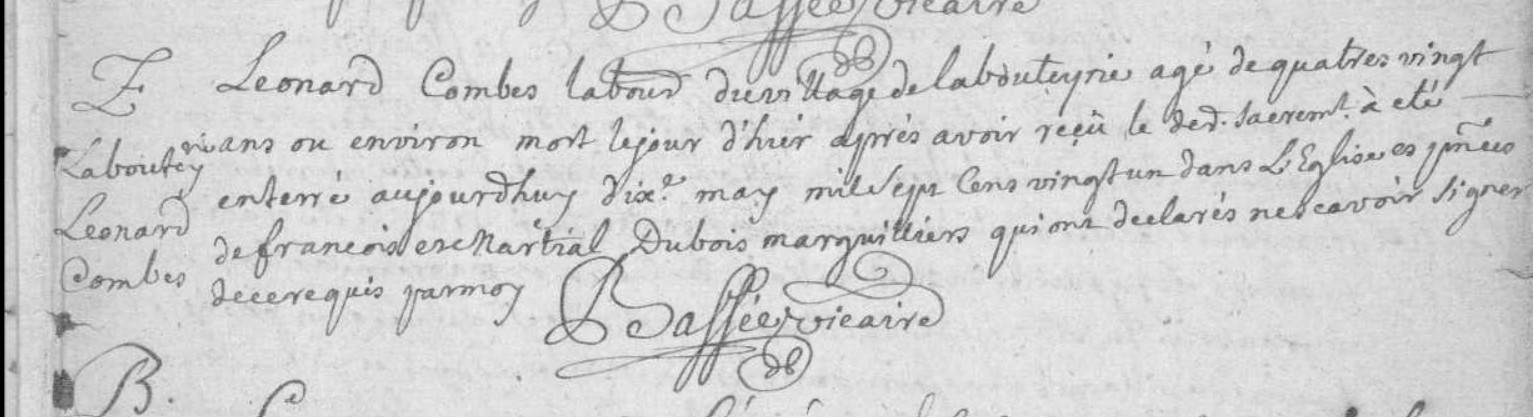 Bassée vicaire
E Leonard Combes labour du village de labouteyrie agé de quatres vingt
Laboutey ans ou environ mort le jour d'hier aprés avoir reçû le der. sacremt. à eté
enterré aujourdhuy dixe. may mil sept cens vingt un dans L'Eglise es pñces
Leonard de francois et Martial Dubois marguilliers qui ont declarés ne scavoir signer
Combes de ce requis par moy
Bassée vicaire
B.